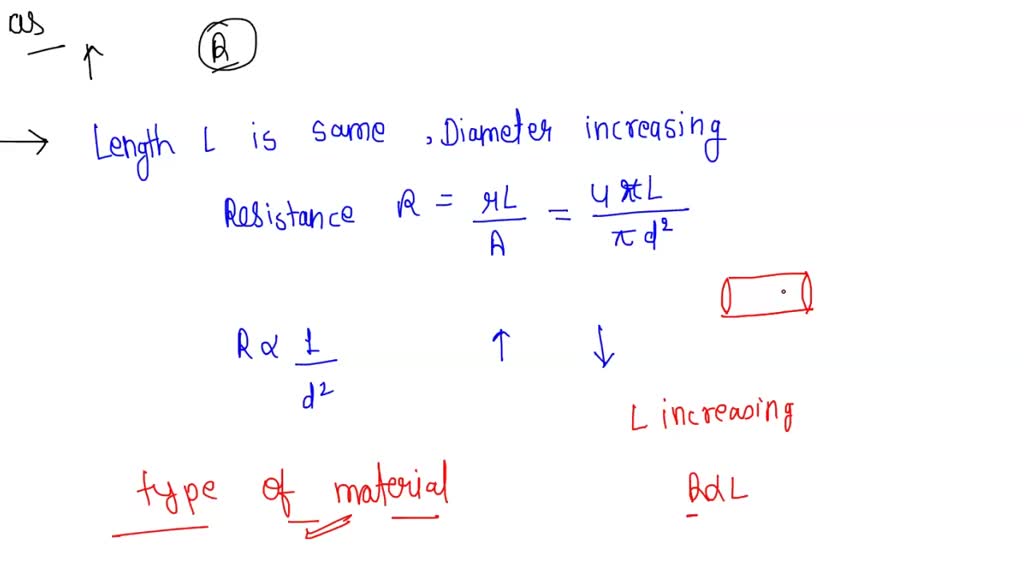 as
↑ R
→ Length L is same , Diameter increasing
Resistance R = rL/A = 4rL/πd²
R ∝ 1/d² ↑ ↓
L increasing
type of material R∝L